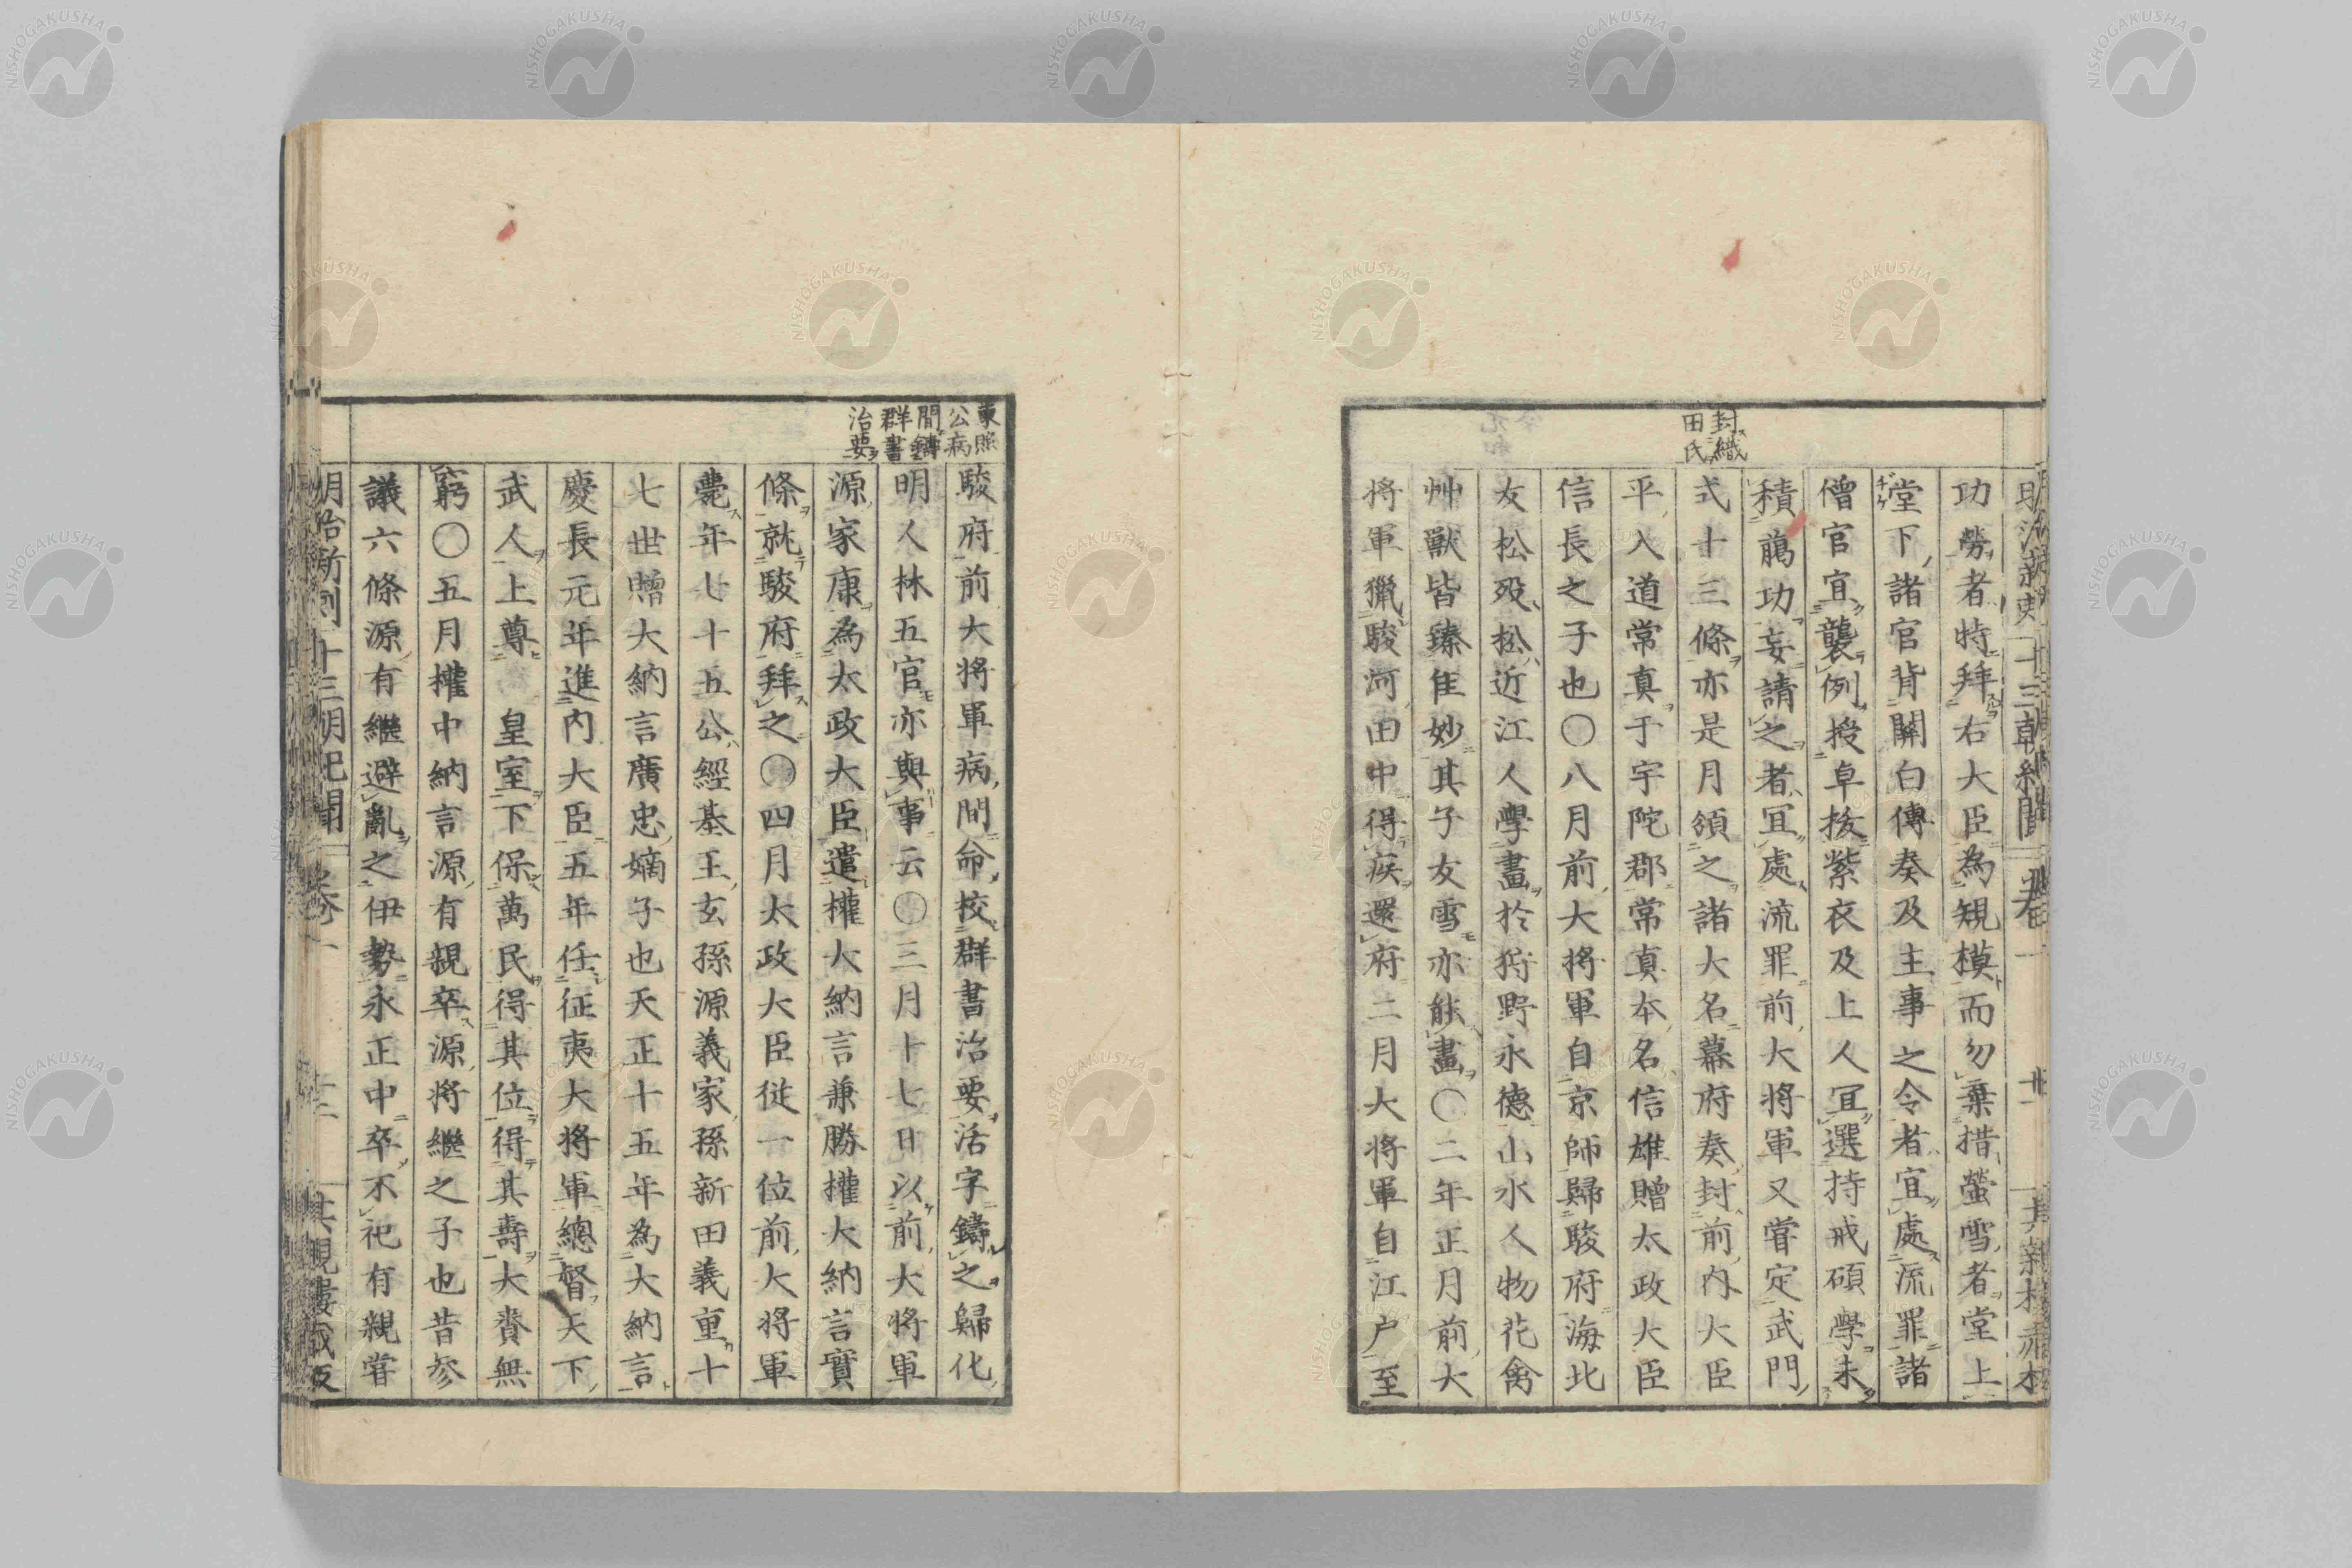 封織
田氏
功勞者特拜右大臣為規模而勿棄措螢雪者堂上
堂下諸官背關白傳奏及主事之令者宜處流罪諸
僧官宜襲例授卓拔紫衣及上人宜選持戒碩學未
積﨟功妄請之者宜處流罪前大將軍又嘗定武門
式十三條亦是月頒之諸大名幕府奏封前內大臣
平入道常真于宇陀郡常真本名信雄贈太政大臣
信長之子也○八月前大將軍自京師歸駿府海北
友松歿松近江人學畫於狩野永德山水人物花禽
艸獸皆臻佳妙其子友雪亦能畫○二年正月前大
將軍獵駿河田中得疾還府二月大將軍自江戶至
東照
公病
間鑄
群書
治要
駿府前大將軍病間命校群書治要活字鑄之歸化
明人林五官亦與事云○三月十七日以前大將軍
源家康為太政大臣遣權大納言兼勝權大納言實
條就駿府拜之○四月太政大臣從一位前大將軍
薨年七十五公經基王玄孫源義家孫新田義重十
七世贈大納言廣忠嫡子也天正十五年為大納言
慶長元年進內大臣五年任征夷大將軍總督天下
武人上尊 皇室下保萬民得其位得其壽大賚無
窮○五月權中納言源有親卒源將繼之子也昔參
議六條源有繼避亂之伊勢永正中卒不祀有親嘗
明治新刻十三朝紀聞 卷一